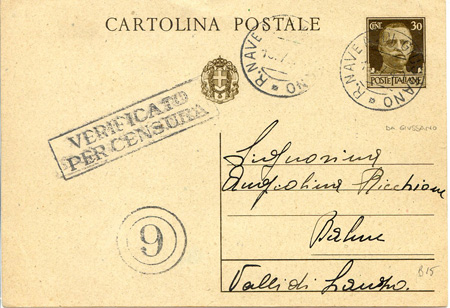 CARTOLINA POSTALE
R. NAVE
ANO
CENT. 30
POSTE ITALIANE
R. NAVE
ANO
VERIFICATO
PER CENSURA
DA GIUSSANO
Signorina
Angiolina Ricchione
Balme
Valli di Lanzo.
9
B15